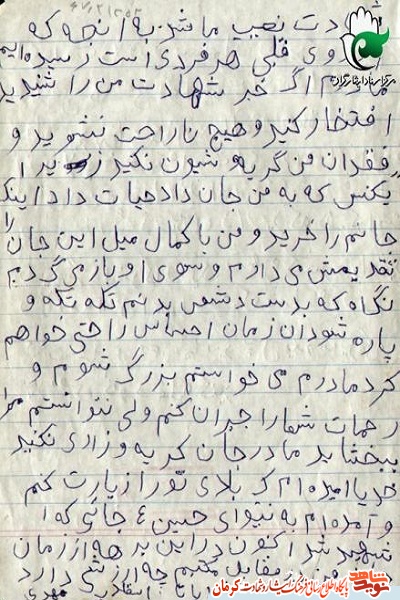 شهادت نصیب ما شد به آنچه که
روی قلبی هر فردی است رسیده‌ایم
اگر خبر شهادت من را شنیدید
افتخار کنید و هیچ ناراحت نشوید و
فقدان من گریه و شیون نکنید زیرا
یکنس که به من جان داد حیات داد اینک
جانم را خرید و من با کمال میل این جان را
تقدیمش می دارم و سوی او باز می گردم
نگاه که بدست دشمن بدنم تکه تکه و
پاره شود آن زمان احساس راحتی خواهم
کرد مادرم می خواستم بزرگ شوم و
زحمات شما را جبران کنم ولی نتوانستم مرا
ببخشاید مادر جان گریه و زاری نکنید
خدایا آمده ام کربلای تو را زیارت کنم
و آمده ام به نینوای حسین ع جائی که
شهید شد اکنون در این برهه از زمان
مقابل چه ارزشی دارد
مهدی
مرکز اسناد ایثارگران
نوید شاهد
پایگاه اطلاع رسانی فرهنگ ایثار و شهادت کرمان